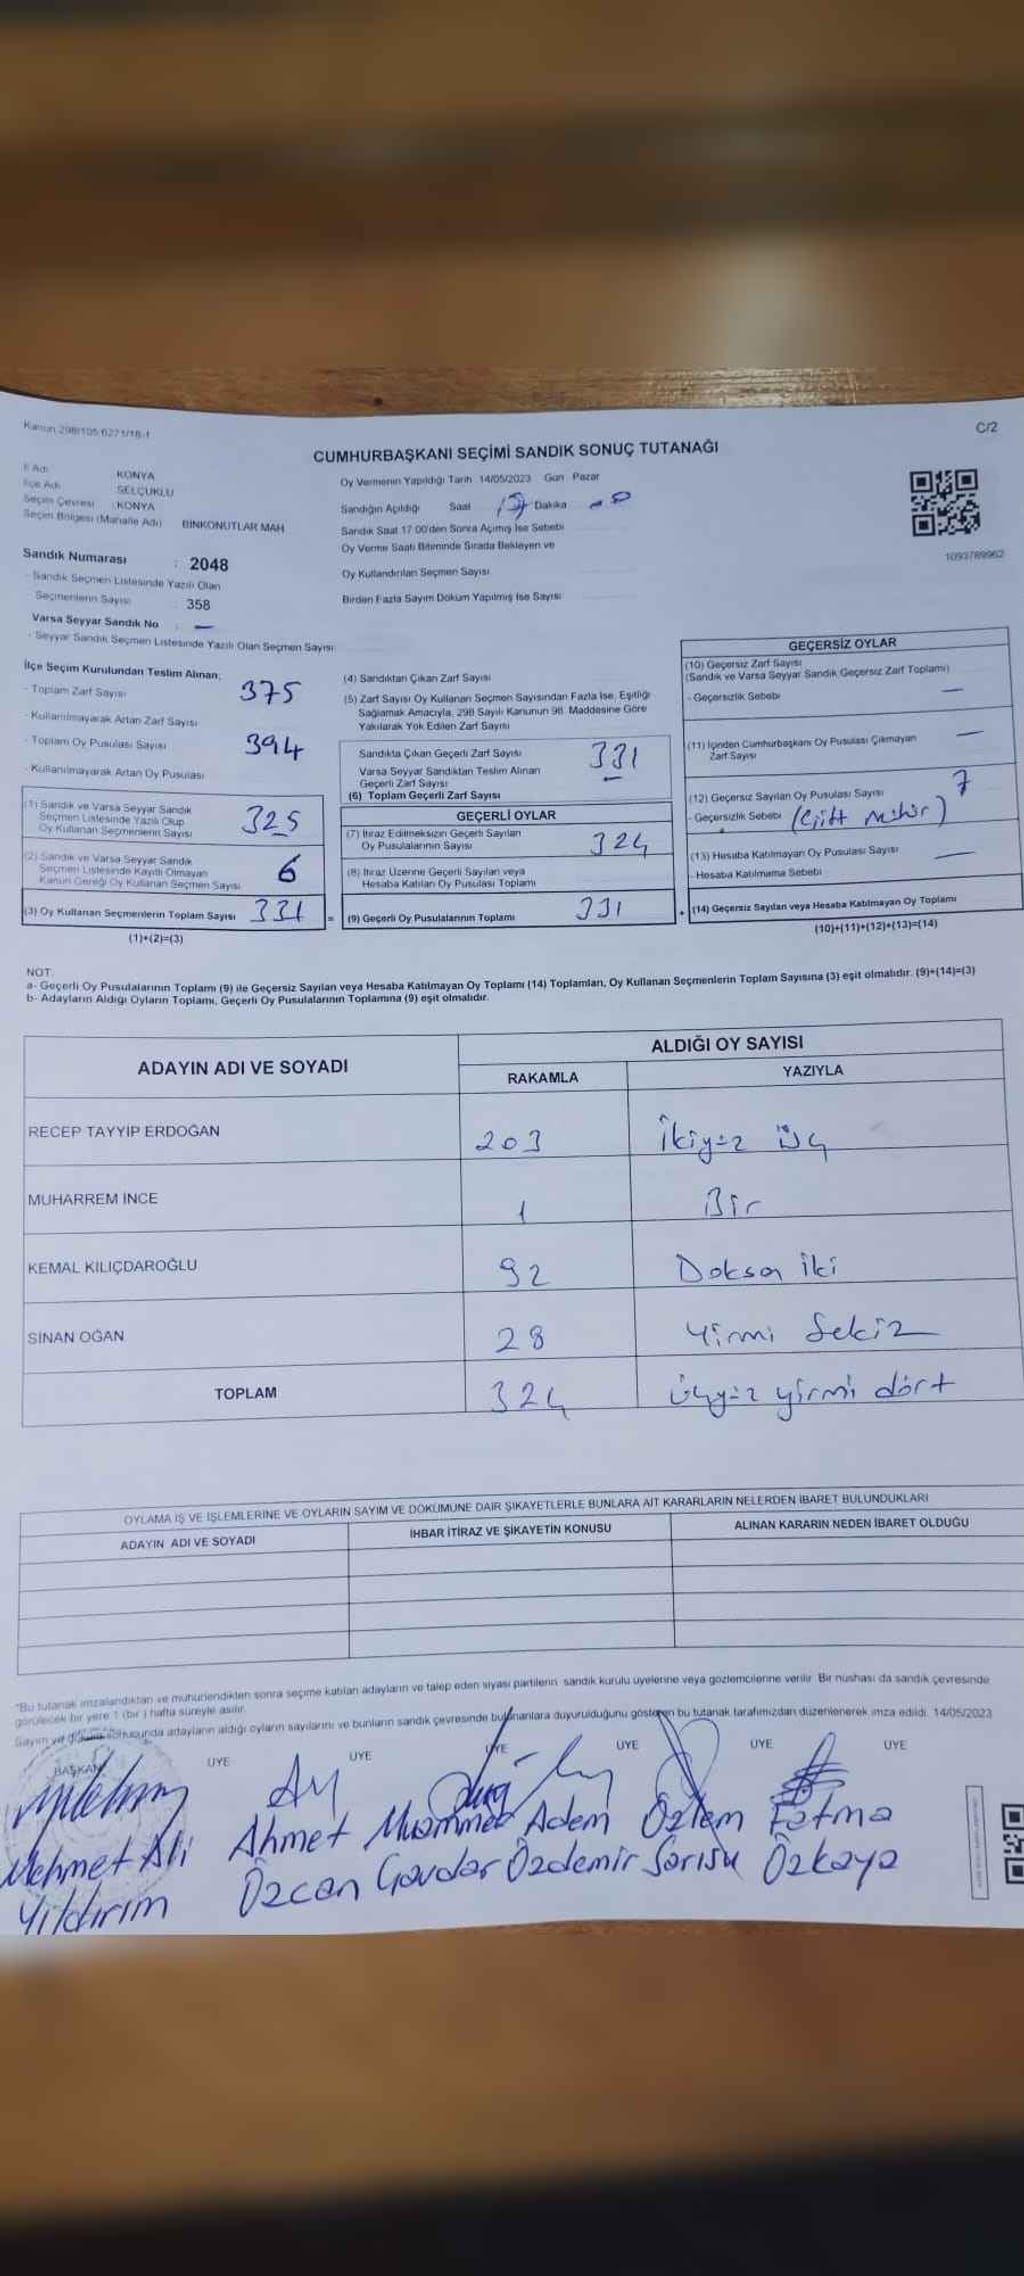 Kanun 298/105 6271/18-1
C/2
CUMHURBAŞKANI SEÇİMİ SANDIK SONUÇ TUTANAĞI
İl Adı KONYA
İlçe Adı SELÇUKLU
Seçim Çevresi KONYA
Seçim Bölgesi (Mahalle Adı) BİNKONUTLAR MAH
Sandık Numarası : 2048
- Sandık Seçmen Listesinde Yazılı Olan
Seçmenlerin Sayısı : 358
Varsa Seyyar Sandık No : —
- Seyyar Sandık Seçmen Listesinde Yazılı Olan Seçmen Sayısı
Oy Vermenin Yapıldığı Tarih 14/05/2023 Gün Pazar
Sandığın Açıldığı Saat 17 Dakika
Sandık Saat 17:00'den Sonra Açılmış İse Sebebi
Oy Verme Saati Bitiminde Sırada Bekleyen ve
Oy Kullandırılan Seçmen Sayısı
Birden Fazla Sayım Döküm Yapılmış İse Sayısı
1093789962
İlçe Seçim Kurulundan Teslim Alınan;
- Toplam Zarf Sayısı 375
- Kullanılmayarak Artan Zarf Sayısı
- Toplam Oy Pusulası Sayısı 394
- Kullanılmayarak Artan Oy Pusulası
(1) Sandık ve Varsa Seyyar Sandık
Seçmen Listesinde Yazılı Olup
Oy Kullanan Seçmenlerin Sayısı 325
(2) Sandık ve Varsa Seyyar Sandık
Seçmen Listesinde Kayıtlı Olmayan
Kanun Gereği Oy Kullanan Seçmen Sayısı 6
(3) Oy Kullanan Seçmenlerin Toplam Sayısı 331 =
(1)+(2)=(3)
(4) Sandıktan Çıkan Zarf Sayısı
(5) Zarf Sayısı Oy Kullanan Seçmen Sayısından Fazla İse, Eşitliği
Sağlamak Amacıyla, 298 Sayılı Kanunun 98. Maddesine Göre
Yakılarak Yok Edilen Zarf Sayısı
Sandıkta Çıkan Geçerli Zarf Sayısı 331
Varsa Seyyar Sandıktan Teslim Alınan
Geçerli Zarf Sayısı —
(6) Toplam Geçerli Zarf Sayısı
GEÇERLİ OYLAR
(7) İtiraz Edilmeksizin Geçerli Sayılan
Oy Pusulalarının Sayısı 324
(8) İtiraz Üzerine Geçerli Sayılan veya
Hesaba Katılan Oy Pusulası Toplamı
(9) Geçerli Oy Pusulalarının Toplamı 331 +
GEÇERSİZ OYLAR
(10) Geçersiz Zarf Sayısı
(Sandık ve Varsa Seyyar Sandık Geçersiz Zarf Toplamı)
- Geçersizlik Sebebi —
(11) İçinden Cumhurbaşkanı Oy Pusulası Çıkmayan —
Zarf Sayısı
(12) Geçersiz Sayılan Oy Pusulası Sayısı 7
- Geçersizlik Sebebi (Çift Mühür)
(13) Hesaba Katılmayan Oy Pusulası Sayısı —
- Hesaba Katılmama Sebebi
(14) Geçersiz Sayılan veya Hesaba Katılmayan Oy Toplamı
(10)+(11)+(12)+(13)=(14)
NOT:
a- Geçerli Oy Pusulalarının Toplamı (9) ile Geçersiz Sayılan veya Hesaba Katılmayan Oy Toplamı (14) Toplamları, Oy Kullanan Seçmenlerin Toplam Sayısına (3) eşit olmalıdır. (9)+(14)=(3)
b- Adayların Aldığı Oyların Toplamı, Geçerli Oy Pusulalarının Toplamına (9) eşit olmalıdır.
ADAYIN ADI VE SOYADI ALDIĞI OY SAYISI
RAKAMLA YAZIYLA
RECEP TAYYİP ERDOĞAN 203 İkiyüz Üç
MUHARREM İNCE 1 Bir
KEMAL KILIÇDAROĞLU 92 Doksan İki
SİNAN OĞAN 28 Yirmi Sekiz
TOPLAM 324 Üçyüz yirmi dört
OYLAMA İŞ VE İŞLEMLERİNE VE OYLARIN SAYIM VE DÖKÜMÜNE DAİR ŞİKAYETLERLE BUNLARA AİT KARARLARIN NELERDEN İBARET BULUNDUKLARI
ADAYIN ADI VE SOYADI İHBAR İTİRAZ VE ŞİKAYETİN KONUSU ALINAN KARARIN NEDEN İBARET OLDUĞU
*Bu tutanak imzalandıktan ve mühürlendikten sonra seçime katılan adayların ve talep eden siyasi partilerin sandık kurulu üyelerine veya gözlemcilerine verilir. Bir nüshası da sandık çevresinde
görülecek bir yere 1 (bir) hafta süreyle asılır.
Sayım ve döküm sonucunda adayların aldığı oyların sayılarını ve bunların sandık çevresinde bulunanlara duyurulduğunu gösteren bu tutanak tarafımızdan düzenlenerek imza edildi. 14/05/2023
BAŞKAN ÜYE ÜYE ÜYE ÜYE ÜYE ÜYE
Mehmet Ali Ahmet Muammer Adem Özlem Fatma
Yıldırım Özcan Gavdar Özdemir Sarısu Özkaya